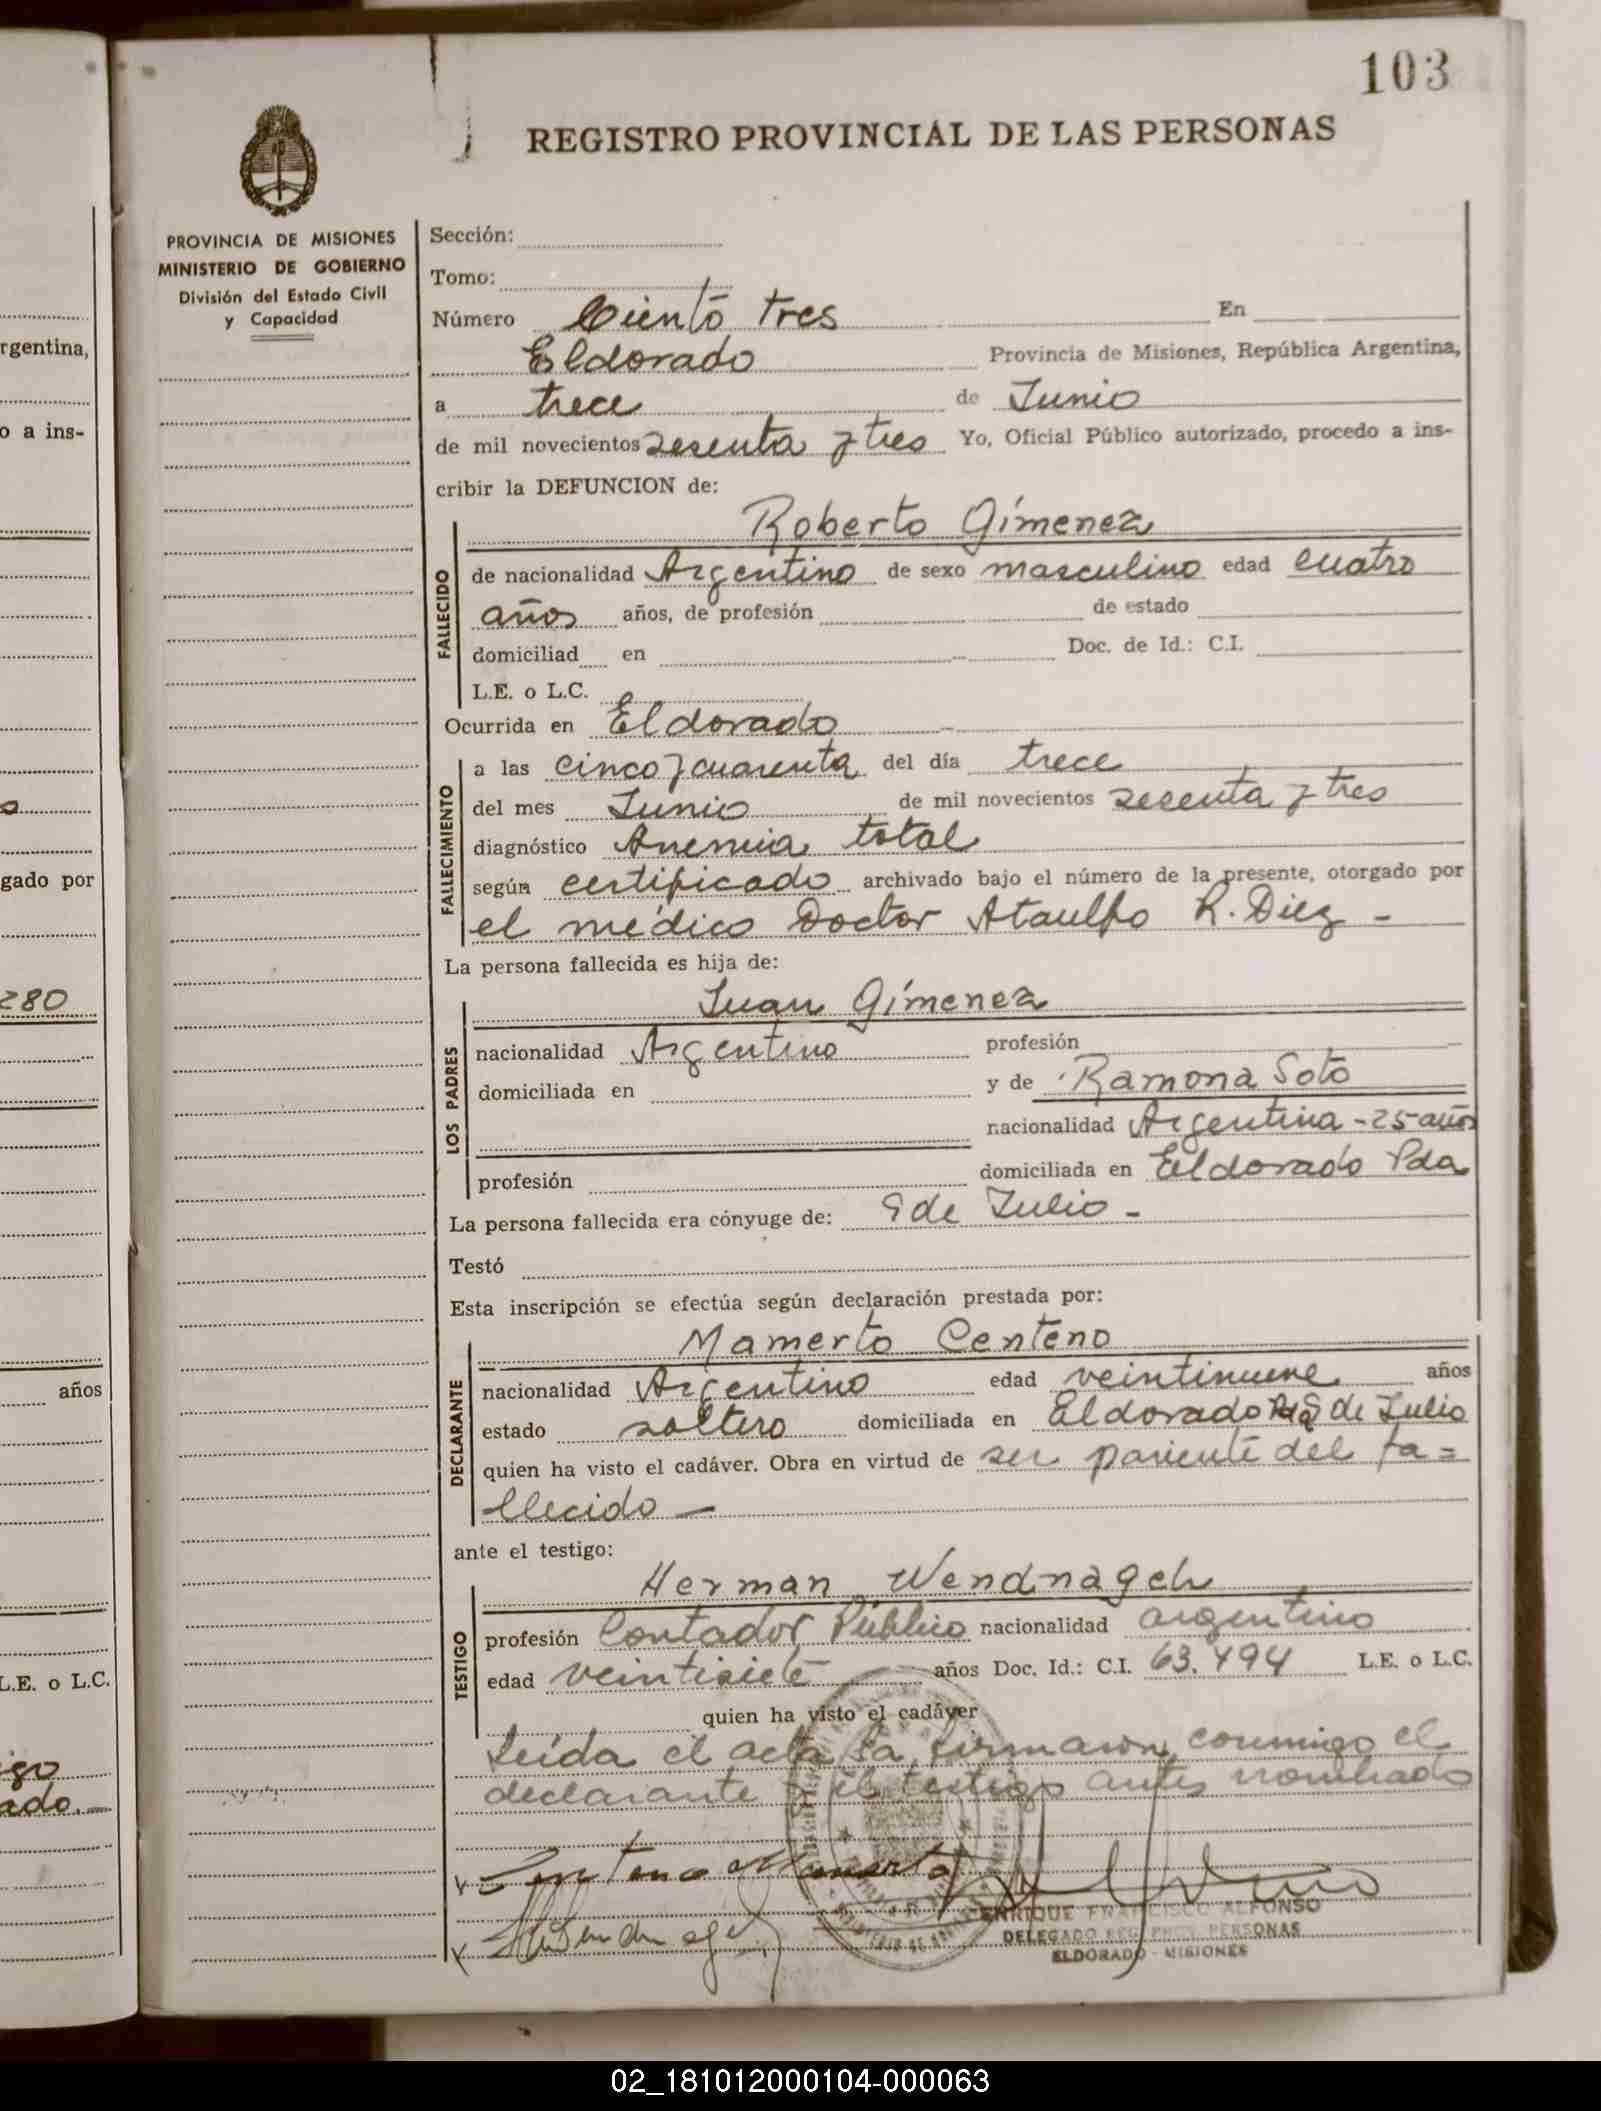 103
REGISTRO PROVINCIAL DE LAS PERSONAS
PROVINCIA DE MISIONES
MINISTERIO DE GOBIERNO
División del Estado Civil
y Capacidad
Sección:
Tomo:
Número Ciento tres En
Eldorado Provincia de Misiones, República Argentina,
a trece de Junio
de mil novecientos sesenta y tres Yo, Oficial Público autorizado, procedo a ins-
cribir la DEFUNCION de:
Roberto Gimenez
FALLECIDO
de nacionalidad Argentino de sexo masculino edad cuatro
años años, de profesión de estado
domiciliad en Doc. de Id.: C.I.
L.E. o L.C.
Ocurrida en Eldorado
FALLECIMIENTO
a las cinco y cuarenta del día trece
del mes Junio de mil novecientos sesenta y tres
diagnóstico Anemia total
según certificado archivado bajo el número de la presente, otorgado por
el médico Doctor Ataulfo R. Diez -
La persona fallecida es hija de:
LOS PADRES
Juan Gimenez
nacionalidad Argentino profesión
domiciliada en y de Ramona Soto
nacionalidad Argentina - 25 años
profesión domiciliada en Eldorado Pda
La persona fallecida era cónyuge de: 9 de Julio -
Testó
Esta inscripción se efectúa según declaración prestada por:
DECLARANTE
Mamerto Centeno
nacionalidad Argentino edad veintinueve años
estado soltero domiciliada en Eldorado Pda 9 de Julio
quien ha visto el cadáver. Obra en virtud de ser pariente del fa=
llecido -
ante el testigo:
TESTIGO
Herman Wendnagel
profesión Contador Público nacionalidad argentino
edad veintisiete años Doc. Id.: C.I. 63.494 L.E. o L.C.
quien ha visto el cadáver
Leída el acta la firmaron conmigo el
declarante y el testigo antes nombrado
Centeno Mamerto
ENRIQUE FRANCISCO ALFONSO
DELEGADO REG. PROV. PERSONAS
ELDORADO - MISIONES
rgentina,
o a ins-
gado por
280
años
L.E. o L.C.
igo
ado.
02_181012000104-000063